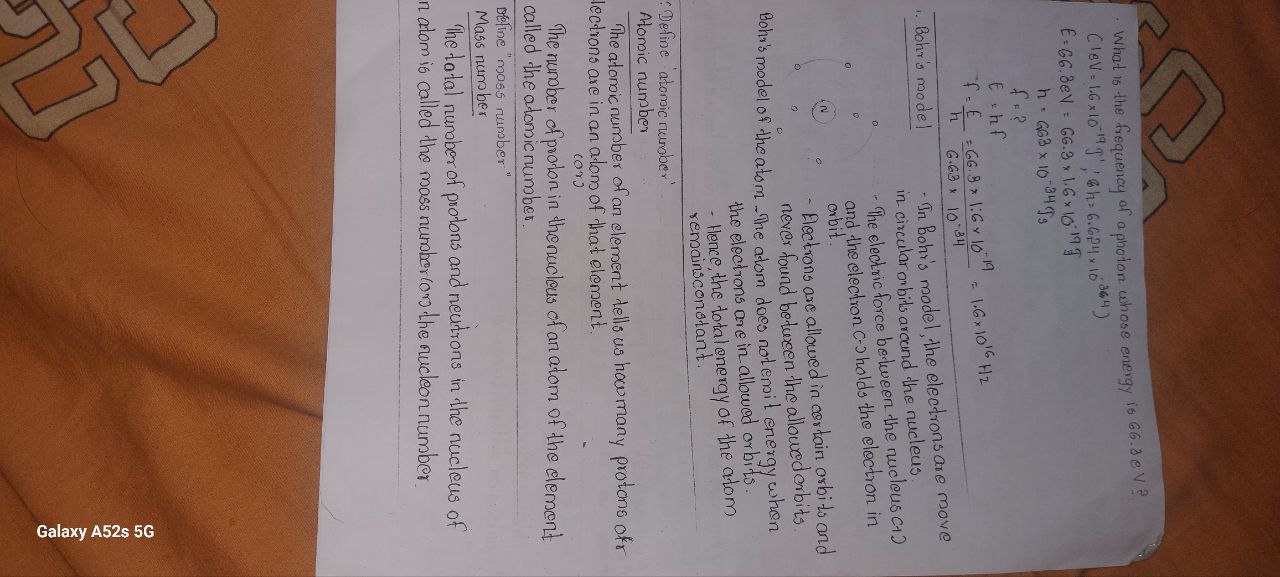 What is the frequency of a photon whose energy is 66.3eV?
(1eV = 1.6 x 10⁻¹⁹J', 8h = 6.624 x 10⁻³⁶⁴)
E = 66.3eV = 66.3 x 1.6 x 10⁻¹⁹J
h = 663 x 10⁻³⁴Js
f = ?
E = hf
f = E/h = 66.3 x 1.6 x 10⁻¹⁹ / 6.63 x 10⁻³⁴ = 1.6 x 10¹⁶ Hz
Bohr's model
- In Bohr's model, the electrons are move
in circular orbits around the nucleus.
- The electric force between the nucleus (+)
and the electron (-) holds the electron in
orbit.
- Electrons are allowed in certain orbits and
never found between the allowed orbits.
N
Bohr's model of the atom
- The atom does not emit energy when
the electrons are in allowed orbits.
- Hence, the total energy of the atom
remains constant.
Define 'atomic number'
Atomic number
The atomic number of an element tells us how many protons or
lectrons are in an atom of that element.
(or)
The number of proton in the nucleus of an atom of the element
called the atomic number.
Define "mass number"
Mass number
The total number of protons and neutrons in the nucleus of
n atom is called the mass number (or) the nucleon number.
Galaxy A52s 5G